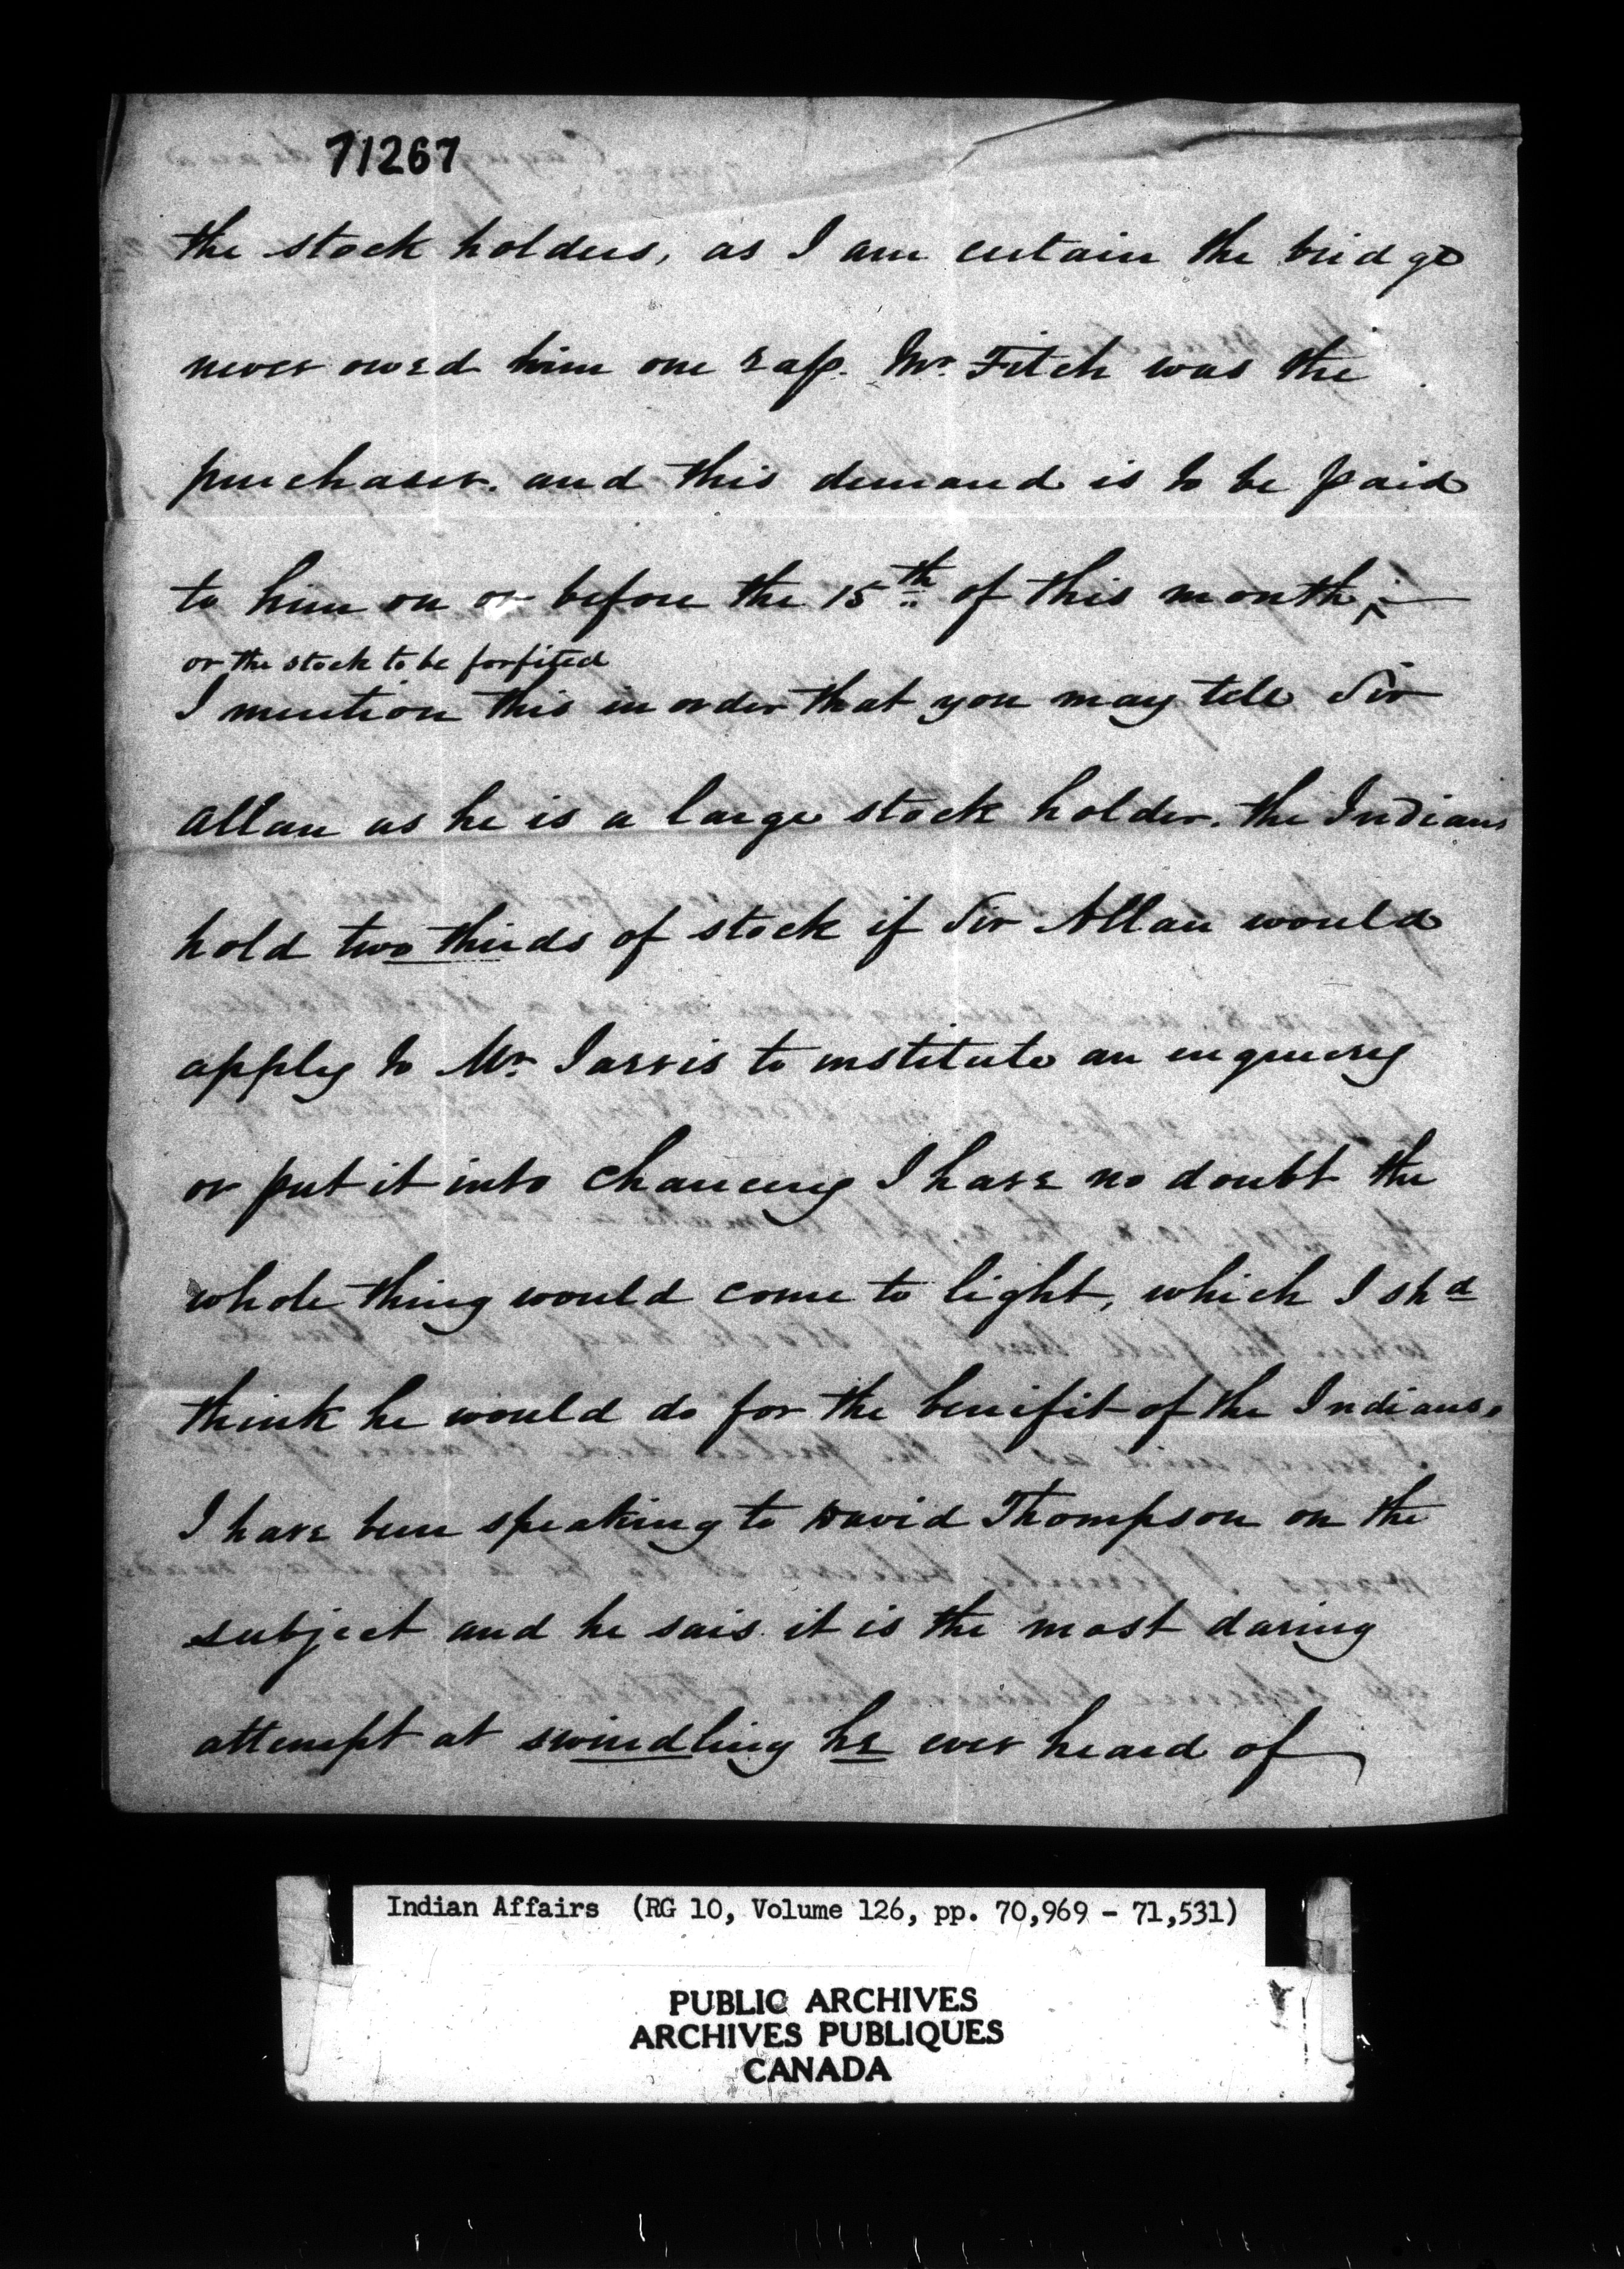 71267
the stock holders, as I am certain the bridge
never owed him one rap. Mr. Fitch was the
purchaser. and this demand is to be paid
to him on or before the 15th of this month,
or the stock to be forfited
I mention this in order that you may tell Sir
Allan as he is a large stock holder. the Indians
hold two thirds of stock if Sir Allan would
apply to Mr. Jarvis to institute an enquiery
or put it into Chancery I have no doubt the
whole thing would come to light, which I shd
think he would do for the benifit of the Indians.
I have been speaking to David Thompson on the
subject and he sais it is the most daring
attempt at swindling he ever heard of
Indian Affairs (RG 10, Volume 126, pp. 70,969 - 71,531)
PUBLIC ARCHIVES
ARCHIVES PUBLIQUES
CANADA